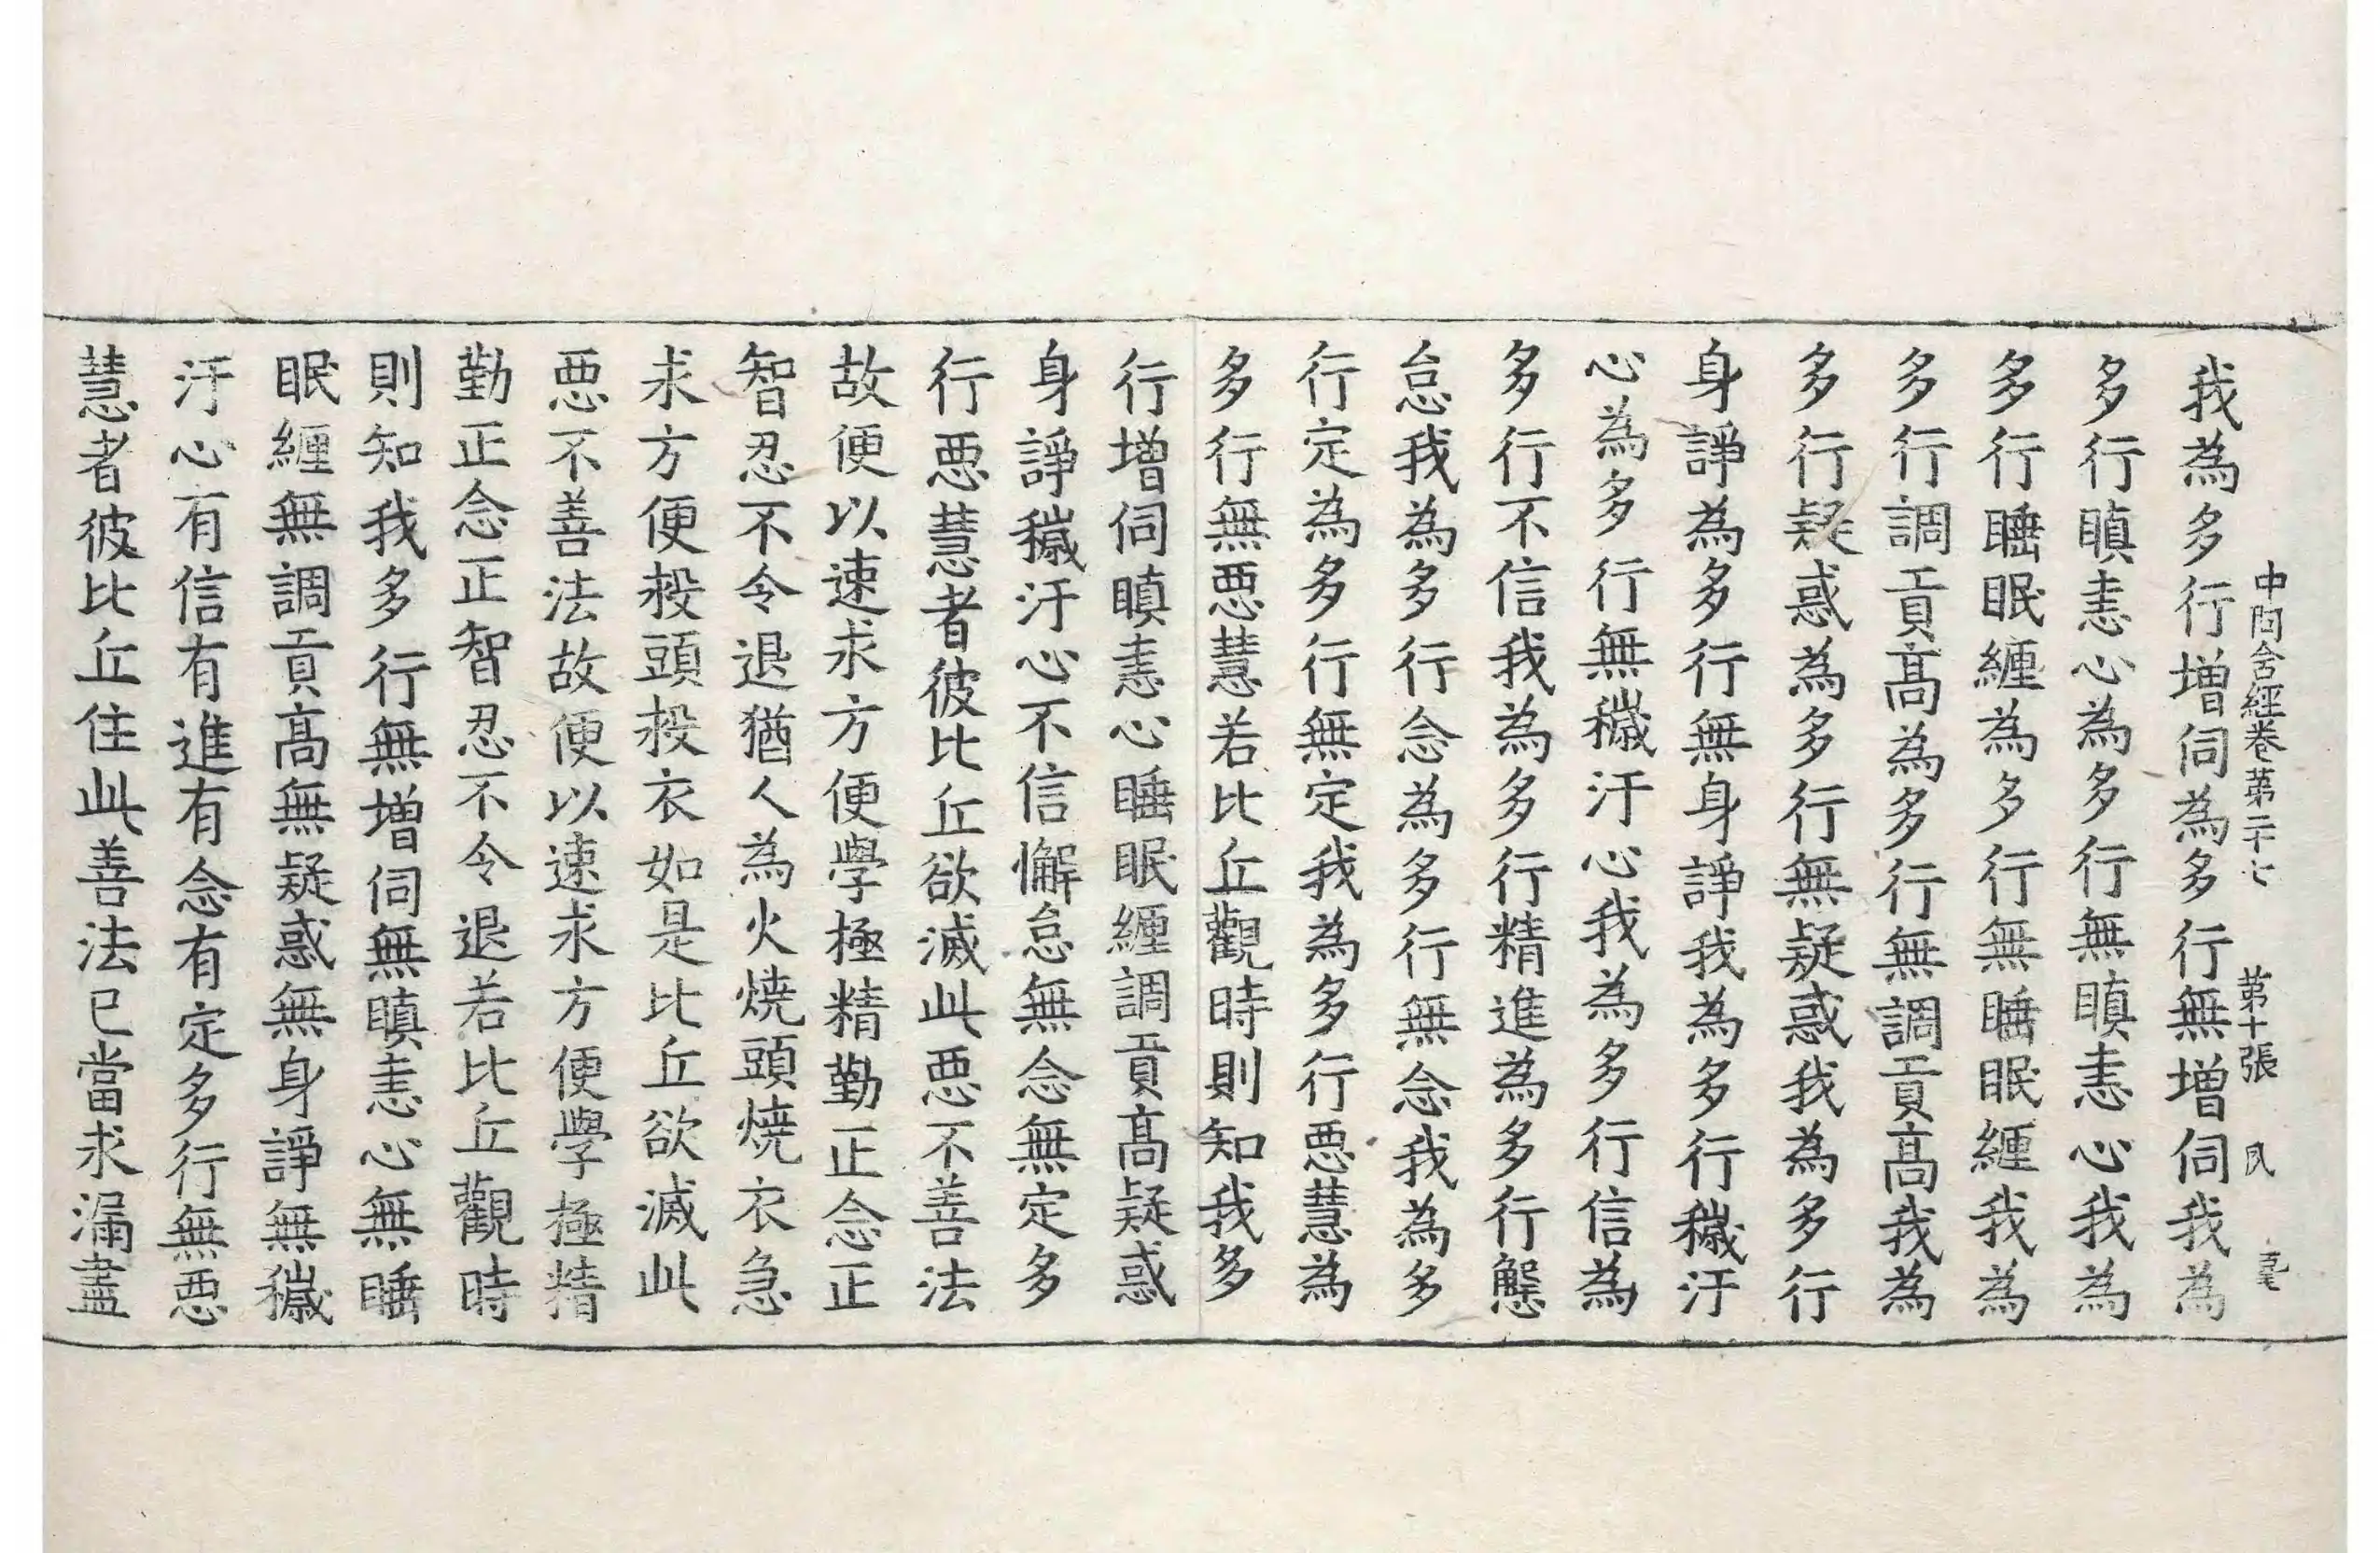 中阿含經卷第二十七　第十張　夙
我為多行增伺為多行無增伺我為
多行瞋恚心為多行無瞋恚心我為
多行睡眠纏為多行無睡眠纏我為
多行調貢髙為多行無調貢髙我為
多行疑惑為多行無疑惑我為多行
身諍為多行無身諍我為多行穢汙
心為多行無穢汙心我為多行信為
多行不信我為多行精進為多行懈
怠我為多行念為多行無念我為多
行定為多行無定我為多行惡慧為
多行無惡慧若比丘觀時則知我多
行增伺瞋恚心睡眠纏調貢髙疑惑
身諍穢汙心不信懈怠無念無定多
行惡慧者彼比丘欲滅此惡不善法
故便以速求方便學極精勤正念正
智忍不令退猶人為火燒頭燒衣急
求方便救頭救衣如是比丘欲滅此
惡不善法故便以速求方便學極精
勤正念正智忍不令退若比丘觀時
則知我多行無增伺無瞋恚心無睡
眠纏無調貢髙無疑惑無身諍無穢
汙心有信有進有念有定多行無惡
慧者彼比丘住此善法已當求漏盡